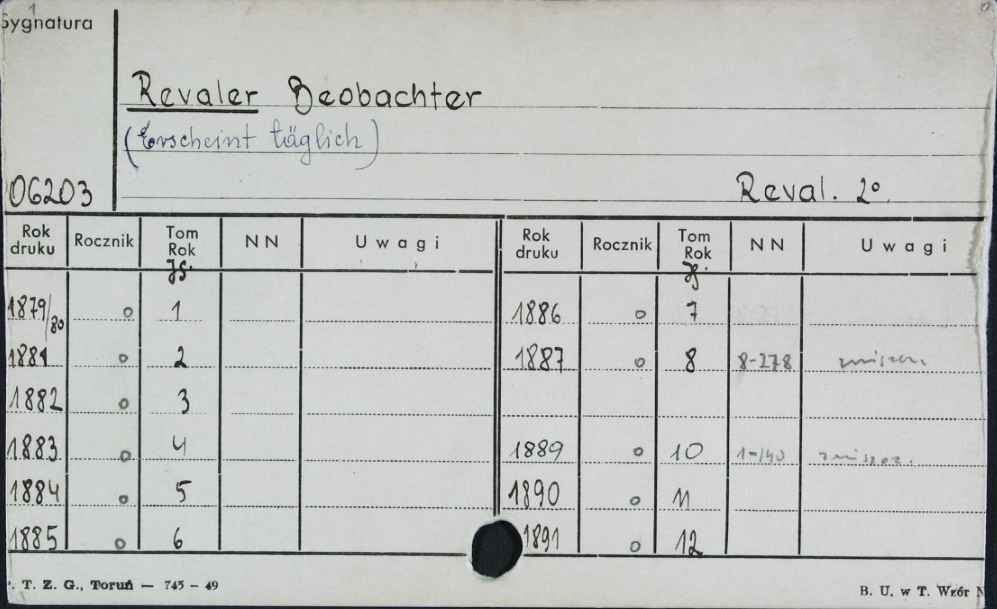 Sygnatura 1
Revaler Beobachter
(Erscheint täglich)
06203
Reval. 2°.
Rok druku Rocznik Tom Rok Jg. NN Uwagi Rok druku Rocznik Tom Rok Jg. NN Uwagi
1879/80 o 1 1886 o 7
1881 o 2 1887 o 8 8-278 zniszcz.
1882 o 3
1883 o 4 1889 o 10 1-140 zniszcz.
1884 o 5 1890 o 11
1885 o 6 1891 o 12
. T. Z. G., Toruń — 745 - 49
B. U. w T. Wzór N